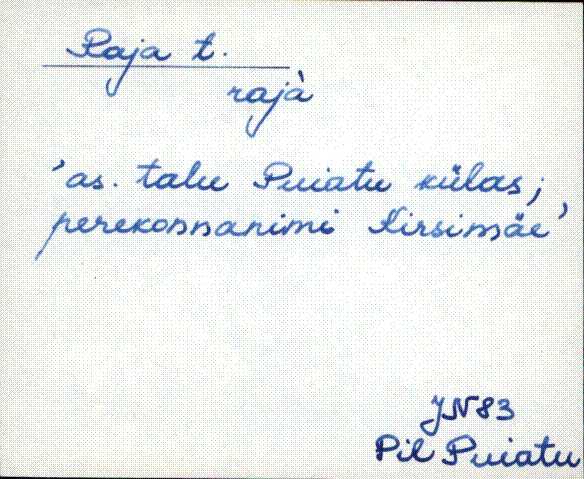 Raja t.
rajà
'as. talu Puiatu külas;
perekonnanimi Kirsimäe'
JN 83
Pil Puiatu